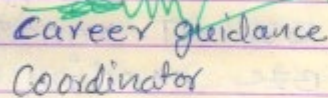 Career guidance
Coordinator